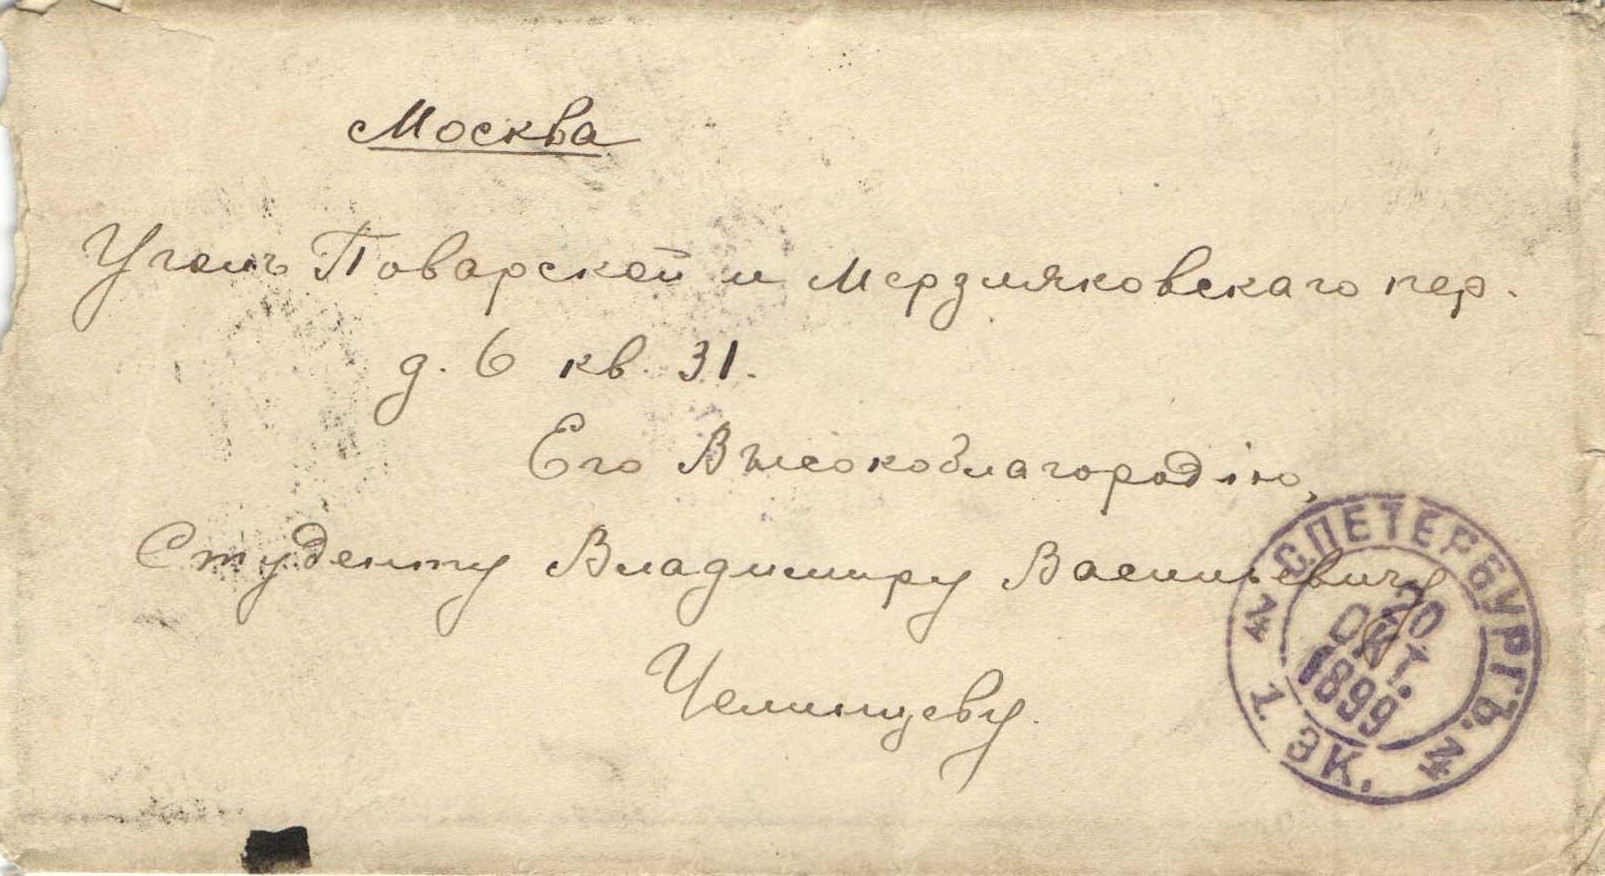 Москва
Уголъ Поварской и Мерзляковскаго пер.
д. 6 кв. 31.
Его Высокоблагородію,
Студенту Владимиру Васильевичу
Челинцеву.
С.ПЕТЕРБУРГЪ.
20
ОКТ.
1899
1. ЭК.